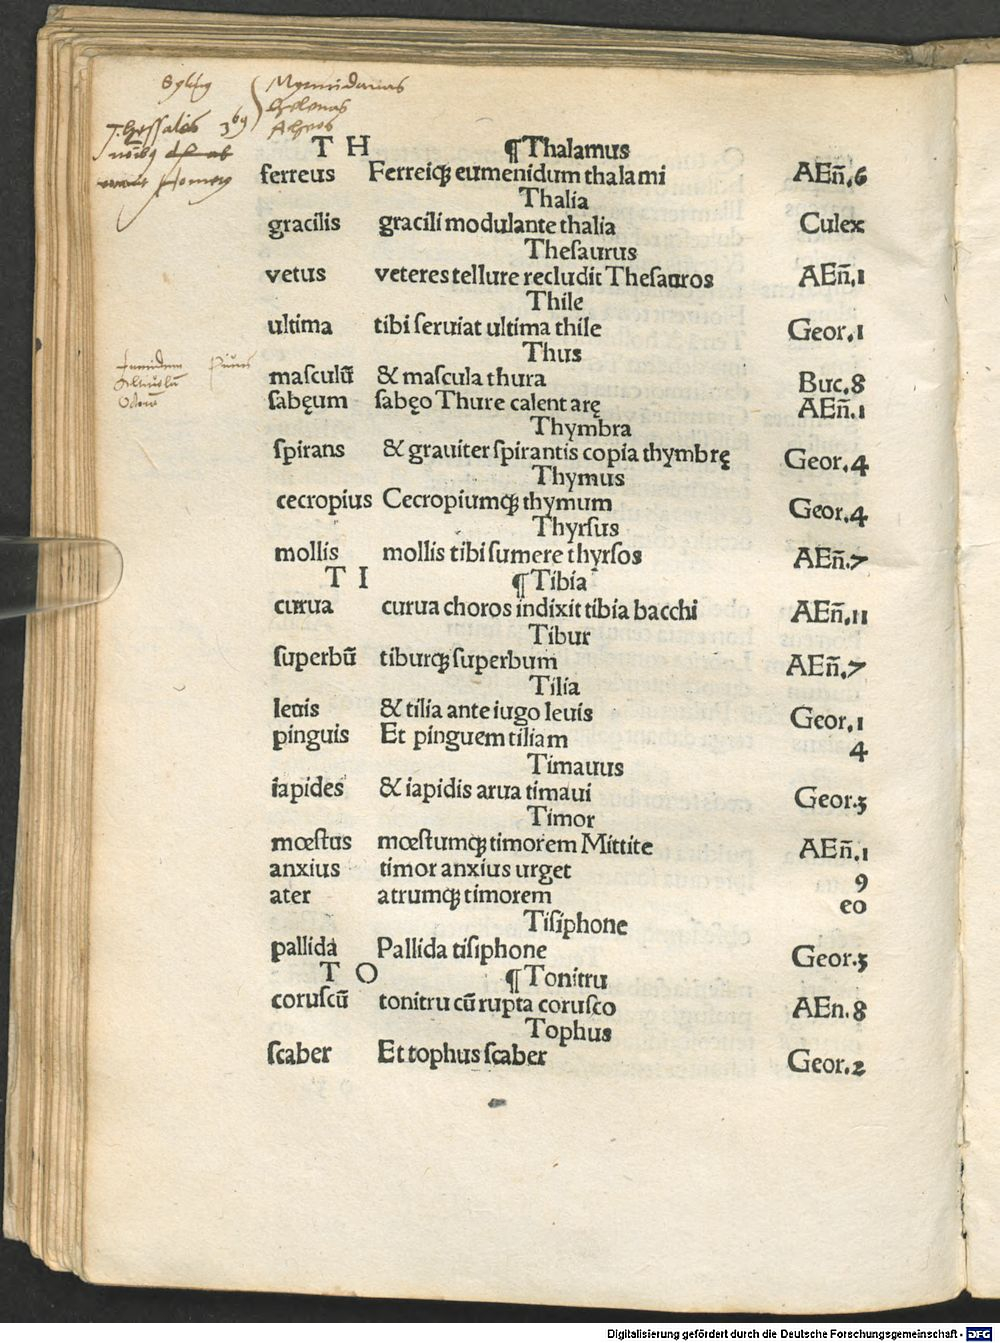 T H ¶Thalamus
ferreus Ferreiqꝫ eumenidum thalami AEn̄.6
Thalia
gracilis gracili modulante thalia Culex
Theſaurus
vetus veteres tellure recludit Theſauros AEn̄.1
Thile
ultima tibi ſeruiat ultima thile Geor.1
Thus
maſculū & maſcula thura Buc.8
ſabęum ſabęo Thure calent arę AEn̄.1
Thymbra
ſpirans & grauiter ſpirantis copia thymbrę Geor.4
Thymus
cecropius Cecropiumqꝫ thymum Geor.4
Thyrſus
mollis mollis tibi ſumere thyrſos AEn̄.7
T I ¶Tibia
curua curua choros indixit tibia bacchi AEn̄.11
Tibur
ſuperbū tiburqꝫ ſuperbum AEn̄.7
Tilia
leuis & tilia ante iugo leuis Geor.1
pinguis Et pinguem tiliam 4
Timauus
iapides & iapidis arua timaui Geor.3
Timor
mœſtus mœſtumqꝫ timorem Mittite AEn̄.1
anxius timor anxius urget 9
ater atrumqꝫ timorem eo
Tiſiphone
pallida Pallida tiſiphone Geor.3
T O ¶Tonitru
coruſcū tonitru cū rupta coruſco AEn.8
Tophus
ſcaber Et tophus ſcaber Geor.2
Digitalisierung gefördert durch die Deutsche Forschungsgemeinschaft - DFG